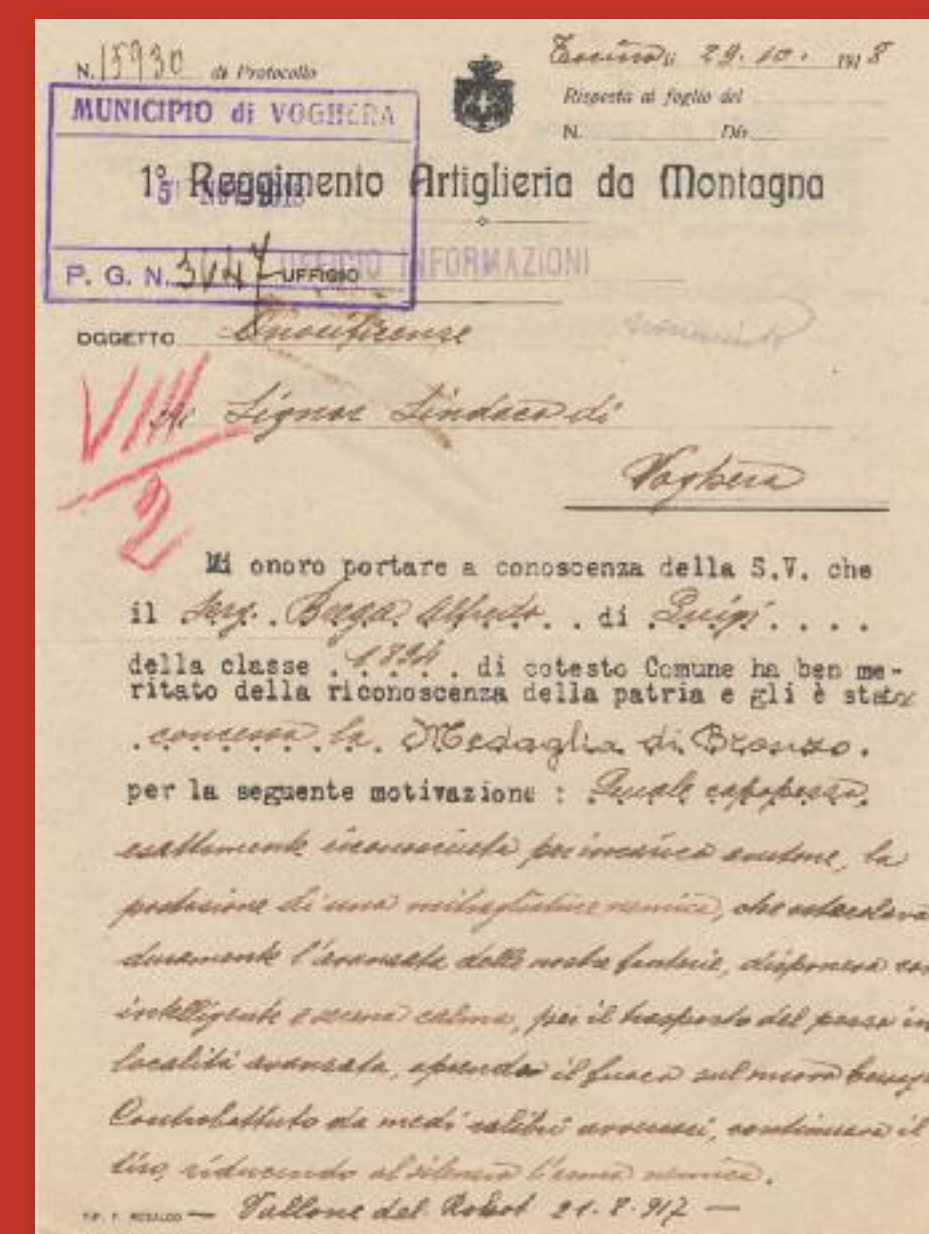 N. 15930 di Protocollo
Torino li 29. 10. 1918
Risposta al foglio del
N. Div.
MUNICIPIO di VOGHERA
5 NOV 1918
P. G. N. 3047 UFFICIO
1° Reggimento Artiglieria da Montagna
UFFICIO INFORMAZIONI
OGGETTO Onorificenze
VIII
2
Al Signor Sindaco di
Voghera
Mi onoro portare a conoscenza della S.V. che
il Serg. Brega Alfredo di Luigi
della classe 1894 di cotesto Comune ha ben me-
ritato della riconoscenza della patria e gli è stata
concessa la Medaglia di Bronzo.
per la seguente motivazione : Quale capopezzo,
esattamente riconosciuta per propria la
postazione di una mitragliatrice nemica, che ostacolava
duramente l'avanzata delle nostre fanterie, disponeva con
intelligente e serena calma, per il trasporto del pezzo in
località avanzata, aprendo il fuoco sul nuovo
Controbattuto da medi calibri avversari, continuava il
tiro, riducendo al silenzio l'arma nemica.
Vallone del Rohot 21. 8. 917 —